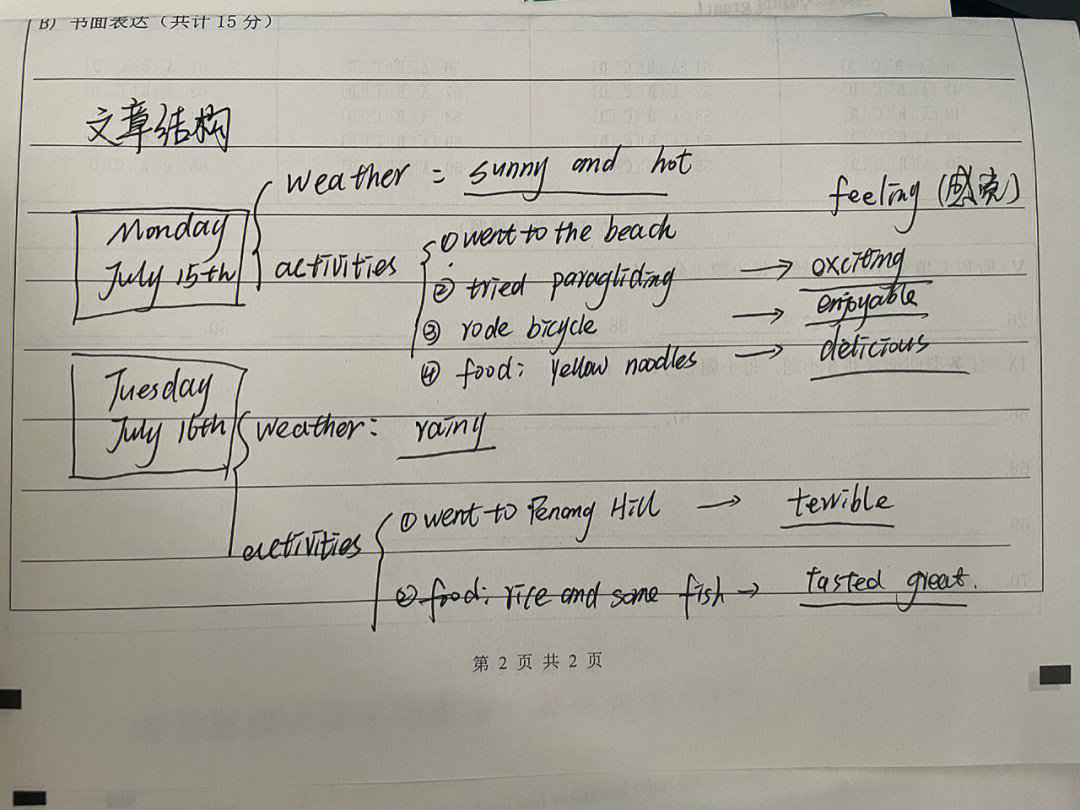 B) 书面表达（共计 15 分）
文章结构
weather = sunny and hot
feeling (感觉)
Monday
July 15th
activities
①went to the beach
② tried paragliding → exciting
③ rode bicycle → enjoyable
④ food: yellow noodles → delicious
Tuesday
July 16th
weather: rainy
activities
① went to Penang Hill → terrible
② food: rice and some fish → tasted great.
第 2 页 共 2 页